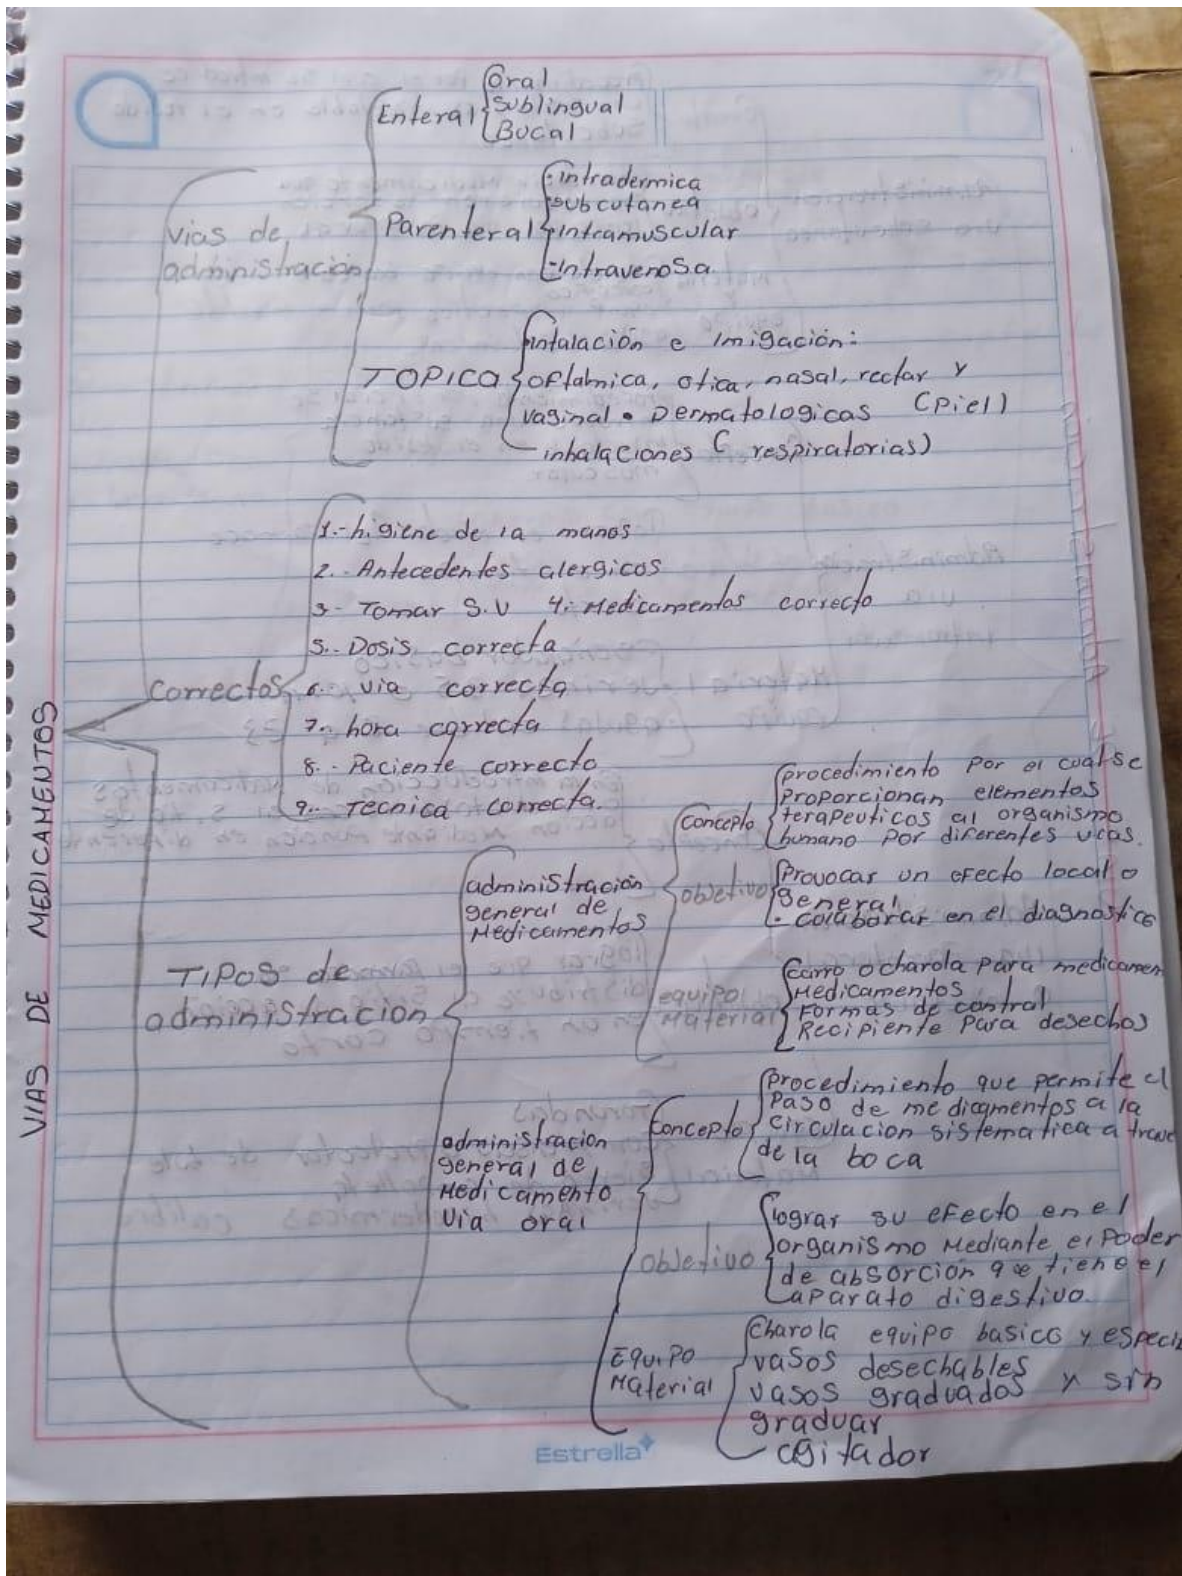 VIAS DE MEDICAMENTOS
vias de
administración
Enteral
Oral
Sublingual
Bucal
Parenteral
- intradermica
subcutanea
- intramuscular
- intravenosa.
TOPICA
intalación e imigación:
oftabnica, otica, nasal, rectar y
vaginal. Dermatologicas (piel)
inhalaciones (respiratorias)
Correctos
1.- higiene de la manos
2.- Antecedentes alergicos
3- Tomar S.V 4.- Medicamentos correcto
5.- Dosis correcta
6.- via correcta
7.- hora correcta
8.- Paciente correcto
9.- Tecnica correcta.
TIPOS de
administracion
administración
general de
Medicamentos
Concepto
procedimiento por el cual se
proporcionan elementos
terapeuticos al organismo
humano por diferentes vias.
objetivo
Provocar un efecto local o
general
- colaborar en el diagnostico
equipo
Material
Carro o charola para medicamen
Medicamentos
Formas de control
Recipiente para desechos
administracion
general de
Medicamento
Via oral
Concepto
procedimiento que permite el
paso de medicamentos a la
circulacion sistematica a trave
de la boca
Objetivo
lograr su efecto en el
organismo Mediante el poder
de absorción que tiene el
aparato digestivo.
Equipo
Material
Charola equipo basico y especi
vasos desechables
vasos graduados y sin
graduar
agitador
Estrella